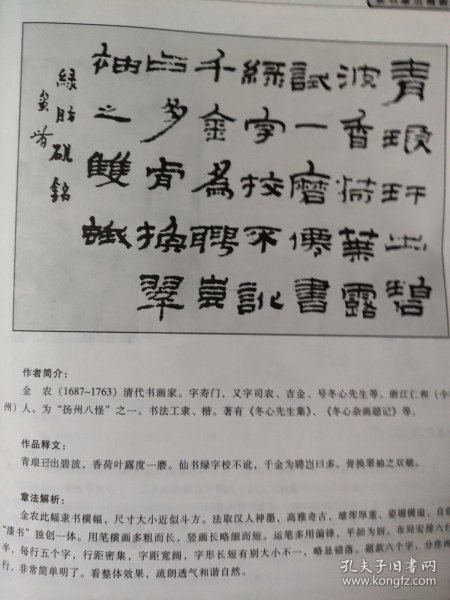 青琅玕出碧
波香荷葉露
試一磨僊書
綠字校不訛
千金為聘豈
曰多肯換翠
袖之雙蛾
綠肪硯銘
作者简介：
金 农（1687~1763）清代书画家。字寿门，又字司农、吉金、号冬心先生等。浙江仁和（今
州）人。为“扬州八怪”之一。书法工隶、楷。著有《冬心先生集》、《冬心杂画题记》等。
作品释文：
青琅玕出碧波，香荷叶露度一磨。仙书绿字校不讹，千金为聘岂曰多。骨换翠袖之双蛾。
章法解析：
金农此幅隶书横幅，尺寸大小近似斗方。法取汉人神墨，高雅奇古，雄浑厚重，姿媚横溢、自
“漆书”独创一体。用笔横画多粗而长，竖画长略细而短。运笔多用偏锋，平拙为妍。布局安排六行
半，每行五个字，行距密集，字距宽阔，字形长短有别大小不一，略显错落。题款六个字，分作两
行，非常简单明了。看整体效果，疏朗透气和谐自然。
孔夫子旧书网